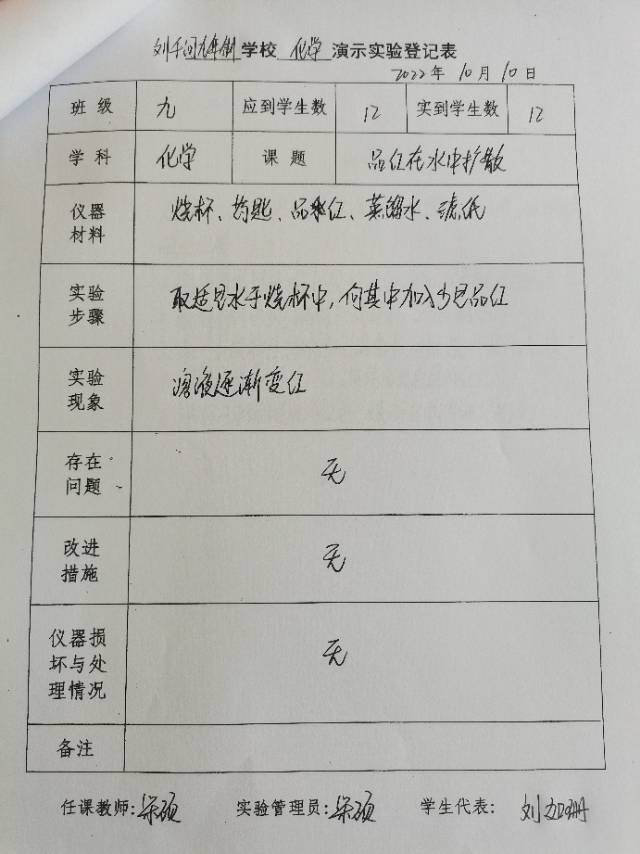 刘千同九年制学校 化学 演示实验登记表
2022年10月10日
班级 九 应到学生数 12 实到学生数 12
学科 化学 课题 品红在水中扩散
仪器材料 烧杯、药匙、品红、蒸馏水、滤纸
实验步骤 取适量水于烧杯中,向其中加入少量品红
实验现象 溶液逐渐变红
存在问题 无
改进措施 无
仪器损坏与处理情况 无
备注
任课教师:梁硕 实验管理员:梁硕 学生代表:刘加珊